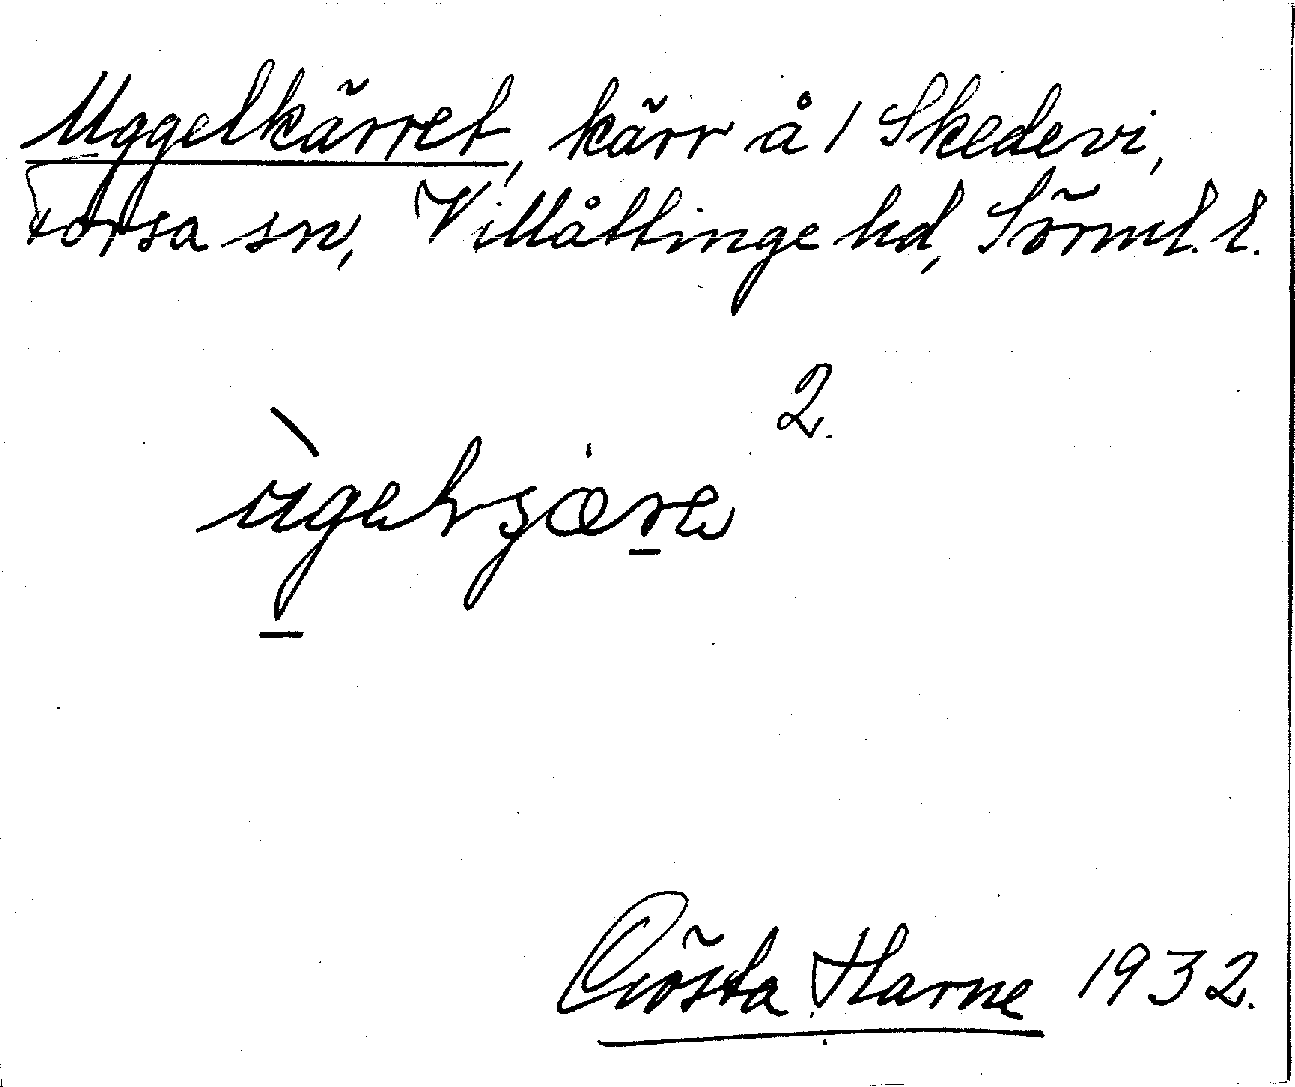 Uggelkärret, kärr å / Skedevi,
Forsa sn, Villåttinge hd, Sörml. l.
2.
ùgelkjære
Gösta Harne 1932.